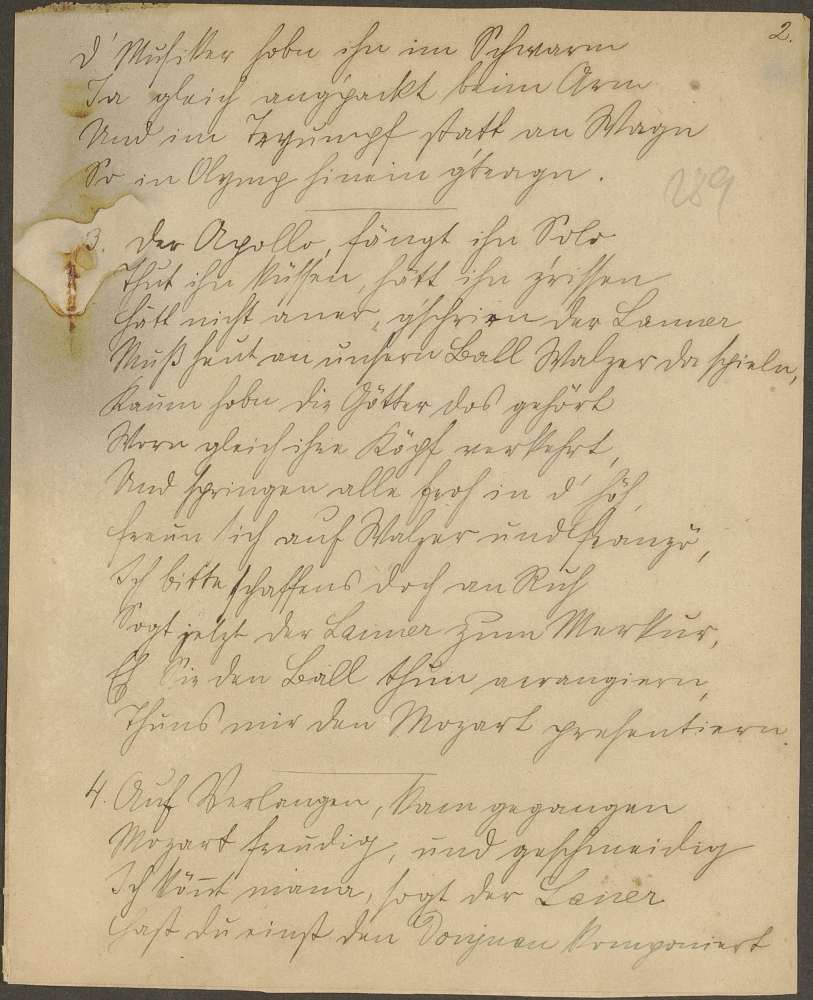 2.
D' Musiker hobn ihn im Schwarm
Ja gleich ang'packt beim Arm
Und im Tryumpf statt an Wagn
So in Olymp hinein g'tragn.
289
3. Der Apollo, fängt ihn Solo
Thut ihn küssen, hätt ihn z'rissen
Hätt nicht aner, g'schrien der Lanner
Muß heut an unsern Ball Walzer da spieln,
Kaum hobn die Götter dos gehört
Worn gleich ihre Köpf verkehrt,
Und springen alle froh in d' Höh,
Freun sich auf Walzer und Franzö,
Ich bitte schaffens doch an Ruh
Sogt jetzt der Lanner zum Merkur,
Eh Sie den Ball thun arrangiern,
Thuns mir den Mozart presentiern.
4. Auf Verlangen, kam gegangen
Mozart freudig, und geschmeidig
Ich könnt niana, sogt der Laner
Hast du einst den Donjuan komponiert